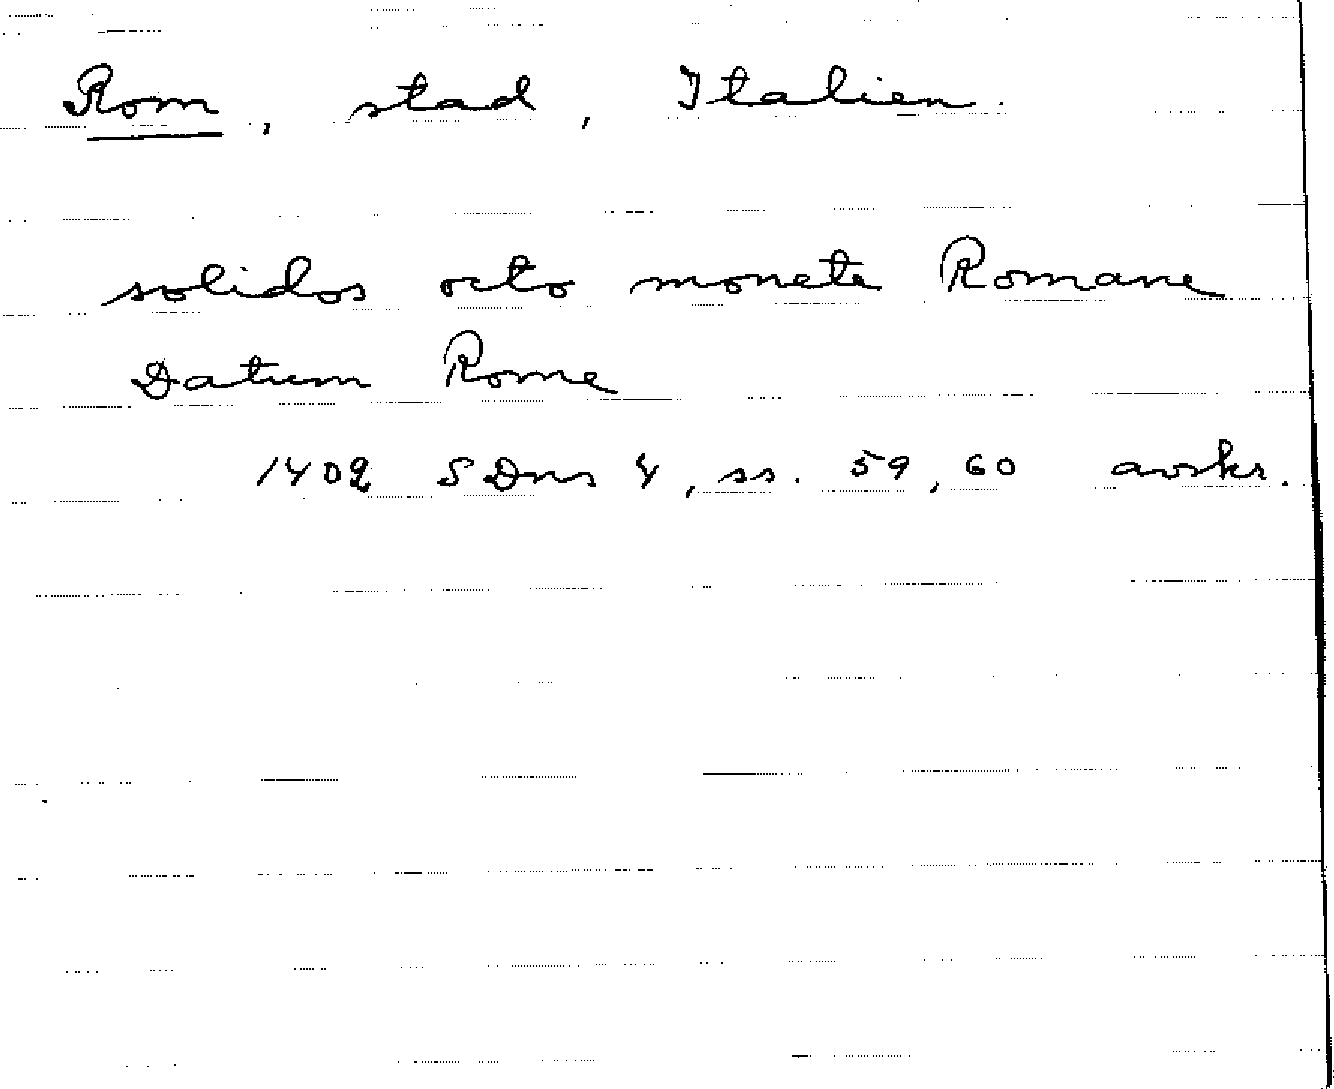 Rom, stad, Italien.
solidos octo monete Romane
Datum Rome
1402 SDns 4, ss. 59, 60 avskr.